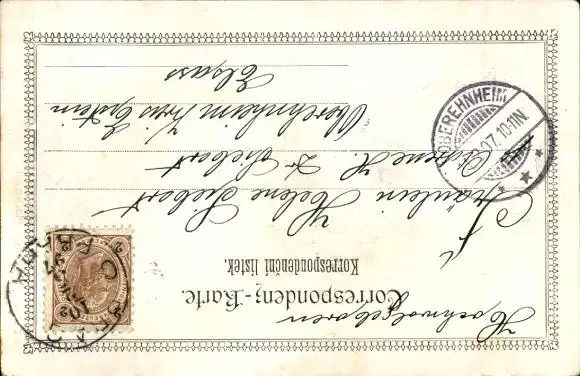 Correspondenz-Karte.
Korrespondenční lístek.
Hochwolgeboren
Fräulein Helene Siebert
Adresse H. Dr Siebert
Oberehnheim Kreis Erstein
Elsass
OBEREHNHEIM
07. 10-11N.
2
2
2